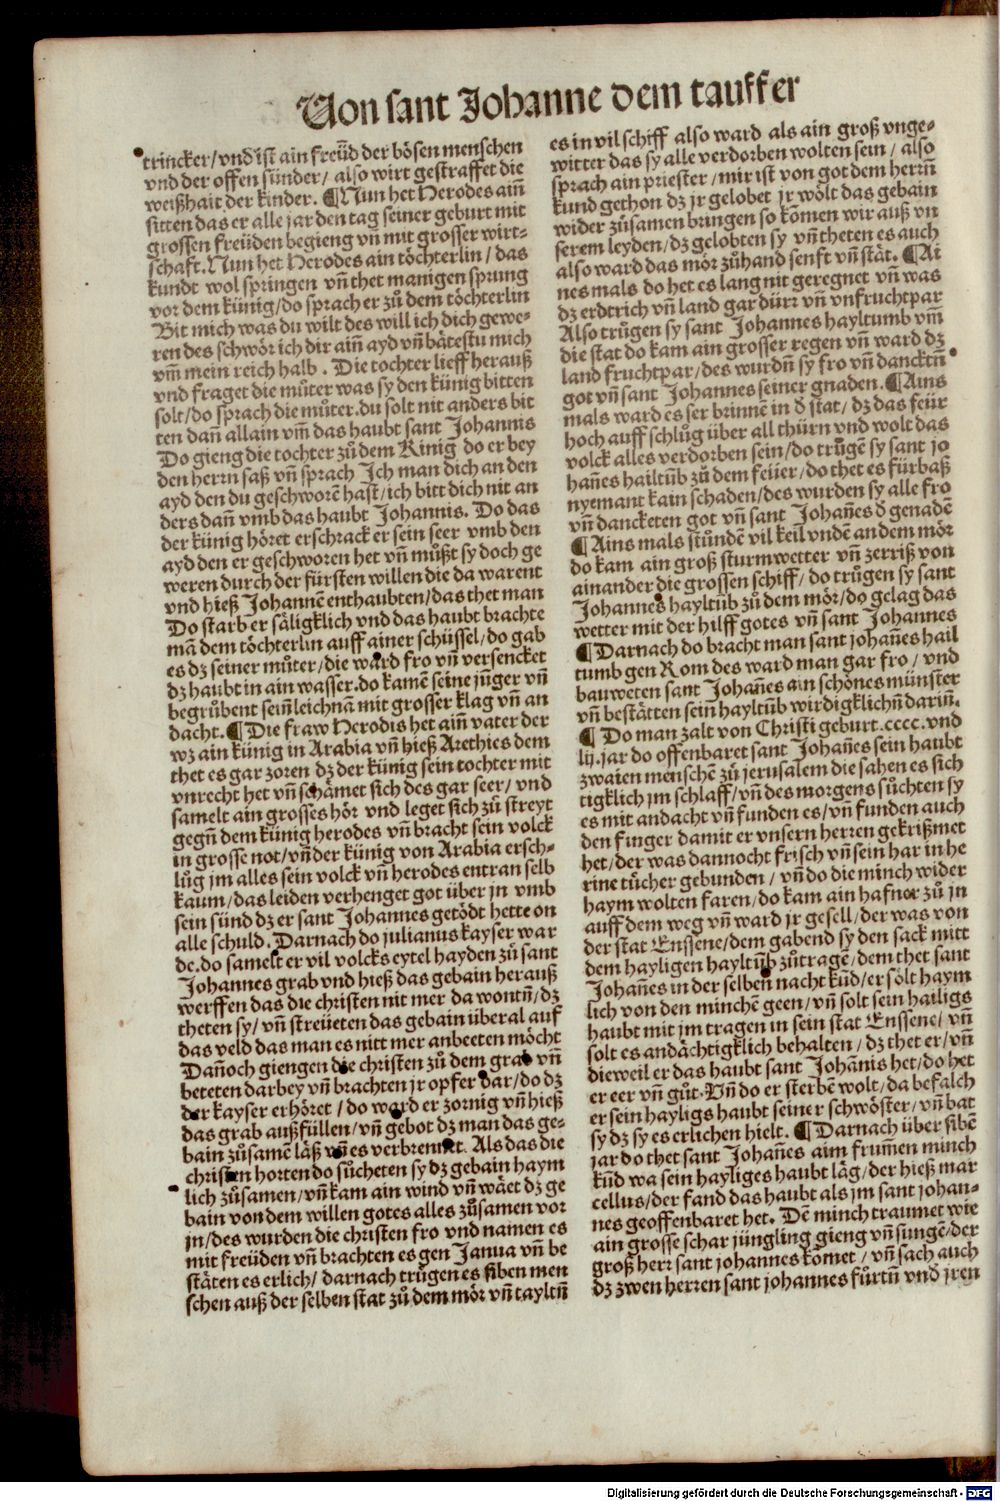 Von sant Johanne dem tauffer
trincker/vnd ist ain freüd der bösen menschen
vnd der offen sünder/ also wirt gestraffet die
weißhait der kinder. ¶Nun het Herodes ainñ
sitten das er alle jar den tag seiner geburt mit
grossen freüden begieng vñ mit grosser wirt-
schaft. Nun het Herodes ain töchterlin/ das
kundt wol springen vñ thet manigen sprung
vor dem künig/do sprach er zů dem töchterlin
Bit mich was du wilt des will ich dich gewe-
ren des schwör ich dir ainñ ayd vñ bätestu mich
vm̄ mein reich halb . Die tochter lieff herauß
vnd fraget die můter was sy den künig bitten
solt/do sprach die můter. du solt nit anders bit
ten dañ allain vm̄ das haubt sant Johannis
Do gieng die tochter zů dem Kinig do er bey
den herrn saß vñ sprach Ich man dich an den
ayd den du geschworē hast/ich bitt dich nit an
ders dañ vmb das haubt Johannis. Do das
der künig höret erschrack er sein seer vmb den
ayd den er geschworen het vñ můßt sy doch ge
weren durch der fürsten willen die da warent
vnd hieß Johannē enthaubten/das thet man
Do starb er säligklich vnd das haubt brachte
mā dem töchterlin auff ainer schüssel/do gab
es dz seiner můter/die ward fro vñ versencket
dz haubt in ain wasser. do kamē seine jnger vñ
begrůbent seinñ leichnā mit grosser klag vñ an
dacht. ¶Die fraw Herodis het ainñ vater der
wz ain künig in Arabia vñ hieß Arethies dem
thet es gar zoren dz der künig sein tochter mit
vnrecht het vñ schämet sich des gar seer/ vnd
samelt ain grosses hör vnd leget sich zů streyt
gegñ dem künig herodes vñ bracht sein volck
in grosse not/vñ der künig von Arabia ersch-
lůg jm alles sein volck vñ herodes entran selb
kaum/das leiden verhenget got über jn vmb
sein sünd dz er sant Johannes getödt hette on
alle schuld. Darnach do julianus kayser war
de. do samelt er vil volcks eytel hayden zů sant
Johannes grab vnd hieß das gebain herauß
werffen das die christen nit mer da wontñ/dz
theten sy/ vñ streüeten das gebain überal auf
das veld das man es nitt mer anbeeten möcht
Dañoch giengen die christen zů dem grab vñ
beteten darbey vñ brachten jr opfer dar/do dz
der kayser erhöret / do ward er zornig vñ hieß
das grab außfüllen/vñ gebot dz man das ge-
bain zůsamē läß vñ es verbrennet. Als das die
christen horten do sůcheten sy dz gebain haym
lich zůsamen/vñ kam ain wind vñ wäet dz ge
bain von dem willen gotes alles zůsamen vor
jn/des wurden die christen fro vnd namen es
mit freüden vñ brachten es gen Janua vñ be
stäten es erlich/ darnach trůgen es siben men
schen auß der selben stat zů dem mör vñ tayltñ
es in vil schiff also ward als ain groß vnge-
witter das sy alle verdorben wolten sein/ also
sprach ain priester/mir ist von got dem herrñ
kund gethon dz jr gelobet jr wölt das gebain
wider zůsamen bringen so kōmen wir auß vn
serem leyden/dz gelobten sy vñ theten es auch
also ward das mör zůhand senft vñ stät. ¶Ai
nes mals do het es lang nit geregnet vñ was
dz erdtrich vñ land gar dürr vñ vnfruchtpar
Also trůgen sy sant Johannes hayltumb vm̄
die stat do kam ain grosser regen vñ ward dz
land fruchtpar/des wurdñ sy fro vñ dancktñ
got vñ sant Johannes seiner gnaden. ¶Ains
mals ward es ser brinnē in d̄ stat/ dz das feür
hoch auff schlůg über all thürn vnd wolt das
volck alles verdorben sein/do trůgē sy sant jo
hañes hailtūb zů dem feüer/do thet es fürbaß
nyemant kain schaden/des wurden sy alle fro
vñ dancketen got vñ sant Johañes d̄ genadē
¶Ains mals stůndē vil keil vndē an dem mör
do kam ain groß sturmwetter vñ zerriß von
ainander die grossen schiff/ do trůgen sy sant
Johannes hayltūb zů dem mör/do gelag das
wetter mit der hilff gotes vñ sant Johannes
¶Darnach do bracht man sant johañes hail
tumb gen Rom des ward man gar fro/ vnd
bauweten sant Johañes ain schönes münster
vñ bestätten seinñ hayltūb wirdigklichñ darinñ.
¶ Do man zalt von Christi geburt.cccc.vnd
lij. jar do offenbaret sant Johañes sein haubt
zwaien menschē zů jerusalem die sahen es sich
tigklich jm schlaff/vñ des morgens sůchten sy
es mit andacht vñ funden es/vñ funden auch
den finger damit er vnsern herren gekrißmet
het/der was dannocht frisch vñ sein har in he
rine tücher gebunden / vñ do die minch wider
haym wolten faren/do kam ain hafner zů jn
auff dem weg vñ ward jr gesell/der was von
der stat Enssene/dem gabend sy den sack mitt
dem hayligen hayltūb zůtragē/dem thet sant
Johañes in der selben nacht kūd/er sölt haym
lich von den minchē geen/vñ solt sein hailigs
haubt mit jm tragen in sein stat Enssene/ vñ
solt es andächtigklich behalten/dz thet er/vñ
dieweil er das haubt sant Johānis het/do het
er eer vñ gůt. Vñ do er sterbē wolt/da befalch
er sein hayligs haubt seiner schwöster/vñ bat
sy dz sy es erlichen hielt. ¶Darnach über sibē
jar do thet sant Johañes aim frum̄en minch
kūd wa sein hayliges haubt läg/der hieß mar
cellus/der fand das haubt als jm sant johan-
nes geoffenbaret het. Dē minch traumet wie
ain grosse schar jüngling gieng vñ sungē/der
groß herr sant johannes kōmet / vñ sach auch
dz zwen herren sant johannes fůrtñ vnd jren
Digitalisierung gefördert durch die Deutsche Forschungsgemeinschaft - DFG